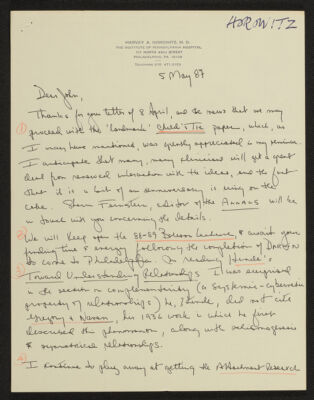 HOROWITZ
HARVEY A. HOROWITZ, M.D.
THE INSTITUTE OF PENNSYLVANIA HOSPITAL
111 NORTH 49TH STREET
PHILADELPHIA, PA. 19139
5 May 87
Dear John,
Thanks for your letter of 8 April, and the news that we may
① proceed with the 'landmark' Child's Tie paper, which, as
I may have mentioned, was greatly appreciated in my seminar.
I anticipate that many, many clinicians will get a great
deal from renewed interaction with the ideas, and the fact
that it is a bit of an anniversary is icing on the
cake. Sherm Feinstein, editor of the Annals will be
in touch with you concerning the details.
② We will keep open the 88-89 Lecture, & await your
finding time & energy following the completion of DARWIN
to come to Philadelphia. In reading Hinde's
③ Toward Understanding Relationships I was surprised
in the section on complementarity (a systemic-cybernetic
property of relationships) he, Hinde, did not cite
Gregory & Naven, his 1936 work in which he first
described the phenomenon, along with
& symmetrical relationships.
④ I continue to plug away at getting the Attachment Research